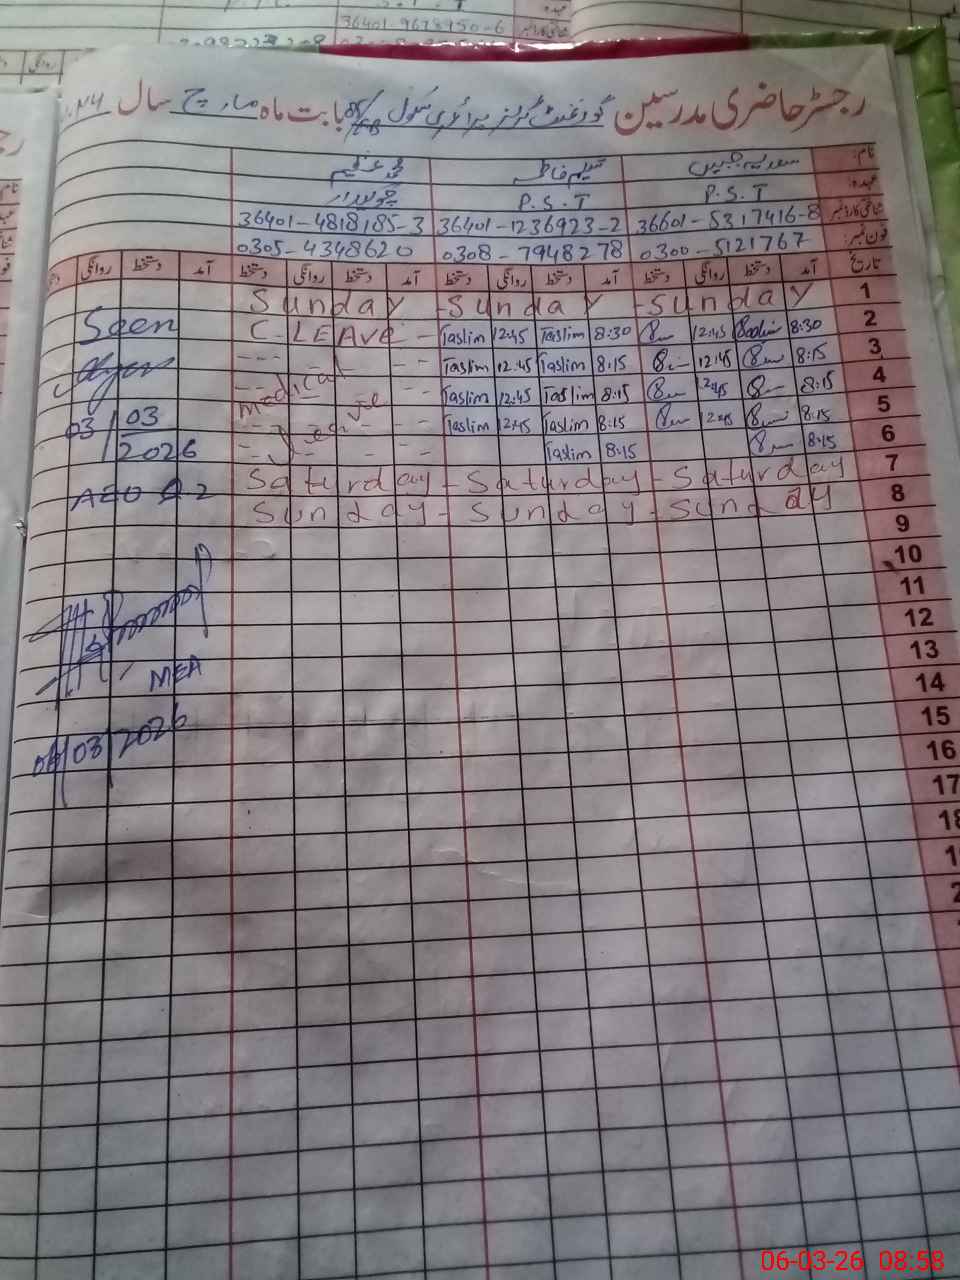 36401-9678950-6
رجسٹر حاضری مدرسین گورنمنٹ گرلز پرائمری سکول بابت ماہ مارچ سال
نام: تسلیم فاطمہ محمد عظیم
عہدہ: P.S.T P.S.T چوکیدار
شناختی کارڈ نمبر 36601-5317416-8 36401-1236923-2 36401-4818185-3
فون نمبر: 0300-5121767 0308-7948278 0305-4348620
تاریخ آمد دستخط روانگی دستخط آمد دستخط روانگی دستخط آمد دستخط روانگی دستخط آمد دستخط روانگی
1 Sunday - Sunday - Sunday
2 C-LEAVE - Taslim 12:45 Taslim 8:30 12:45 8:30
3 Taslim 12:45 Taslim 8:15 12:45 8:15
4 medical Taslim 12:45 Taslim 8:15 12:45 8:15
5 Taslim 12:45 Taslim 8:15 12:45 8:15
6 Taslim 8:15 8:15
7 Saturday - Saturday - Saturday
8 Sunday - Sunday - Sunday
9
10
11
12
13
14
15
16
17
18
Seen
03/03
2026
AEO
MEA
06/03/2026
06-03-26 08:58